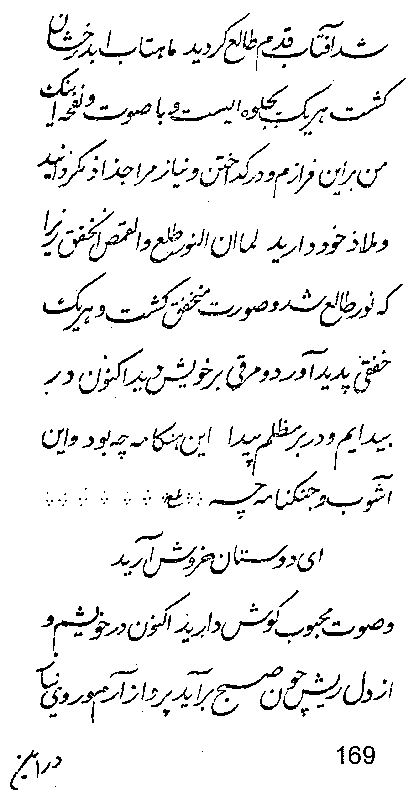 شد آفتاب قدم طالع کردید ماهتاب ابد درخشان
کشت هریک بجلوه ایست و با صوت و نغمه آهنک
من براین فرازم و در کداختن و نیاز مرا جذاذ مکردانید
و ملاذ خود دارید لما ان النور طلع و القمص انخفق زیرا
که نور طالع شد و صورت منخفق کشت و هریک
خفقی پدید آورد و مرقی بر خویش دید اکنون در
بیدایم و در بر مظلم پیدا این هنکامه چه بود و این
آشوب و جنکنامه چه
ای دوستان خروش آرید
و صوت محبوب کوش دارید اکنون در خویشم و
از دل ریش چون صبح برآید پرواز آرم و روی
در این
169